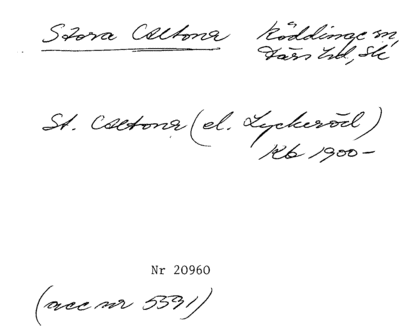 Stora Cseltona Röddinge sn,
Färs hd, Sk
St. Cseltona (el. Lyckeröd)
Kb 1900-
Nr 20960
(acc nr 5591)